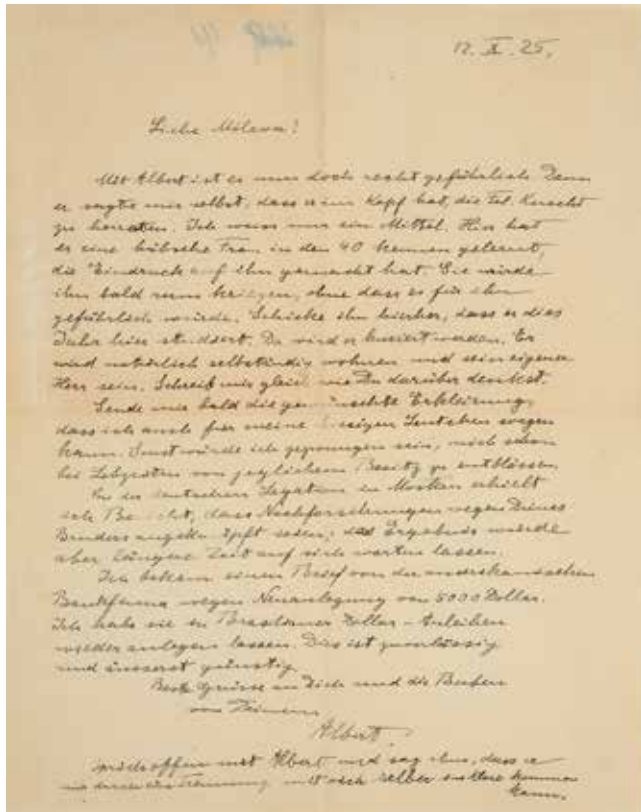 17. X. 25.
Liebe Mileva!
Mit Albert ist es nun doch recht gefährlich. Denn
er sagte mir selbst, dass er im Kopf hat, die Frl. Knecht
zu heiraten. Ich weiss nur ein Mittel. Hier hat
er eine hübsche Frau in den 40 kennen gelernt,
die Eindruck auf ihn gemacht hat. Sie würde
ihn bald rum kriegen, ohne dass es für ihn
gefährlich würde. Schicke ihn hierher, dass er dies
Jahr hier studiert. Da wird er kuriert werden. Er
wird natürlich selbständig wohnen und sein eigener
Herr sein. Schreib mir gleich, wie Du darüber denkst.
Sende mir bald die gewünschte Erklärung,
dass ich auch für meine hiesigen sorgen
kann. Sonst würde ich gezwungen sein, mich schon
bei Lebzeiten von jeglichem Besitz zu entblössen.
Von der deutschen Legation in Moskau erhielt
ich Bericht, dass Nachforschungen wegen Deines
Bruders seien; das Ergebnis würde
aber längere Zeit auf sich warten lassen.
Ich bekam einen Brief von der
Bankfirma wegen Neuanlegung von 5000 Dollar.
Ich habe sie in Dollar-Anleihen
wieder anlegen lassen. Dies ist zuverlässig
und äusserst günstig.
Beste Grüsse an Dich und die Buben
von Deinem
Albert.
Sprich offen mit Albert und sag ihm, dass er
nur durch eine Trennung mit sich selber ins klare kommen
kann.